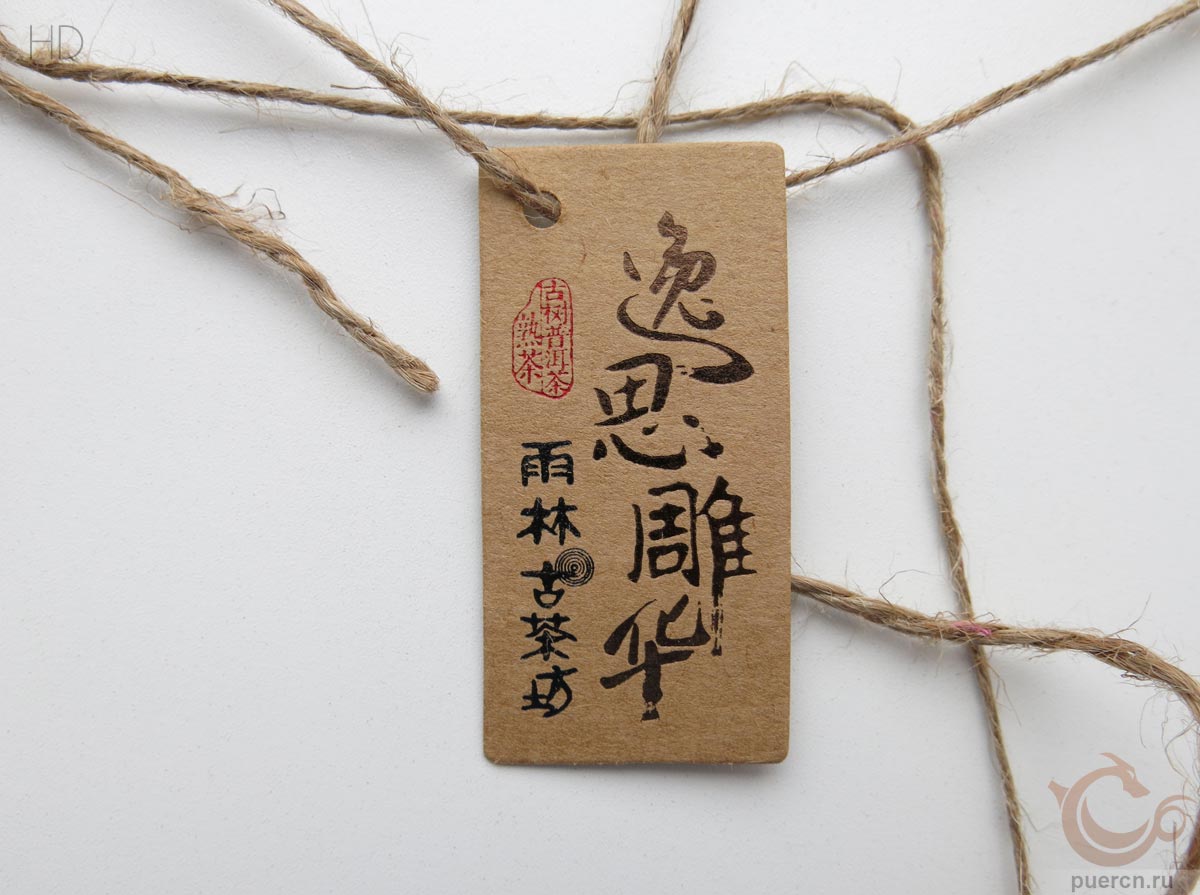 HD
逸思雕华
古树普洱茶
熟茶
雨林古茶坊
puercn.ru